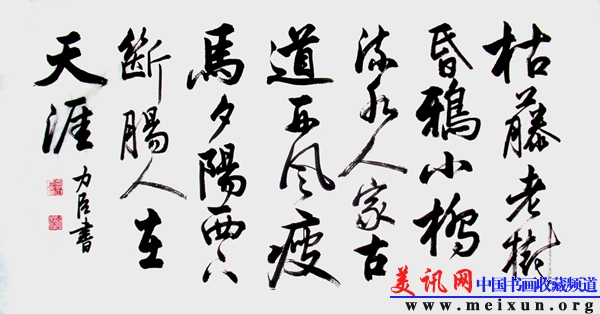 枯藤老樹
昏鴉小橋
流水人家古
道西風瘦
馬夕陽西下
斷腸人在
天涯
力臣書
美讯网中国书画收藏频道
www.meixun.org